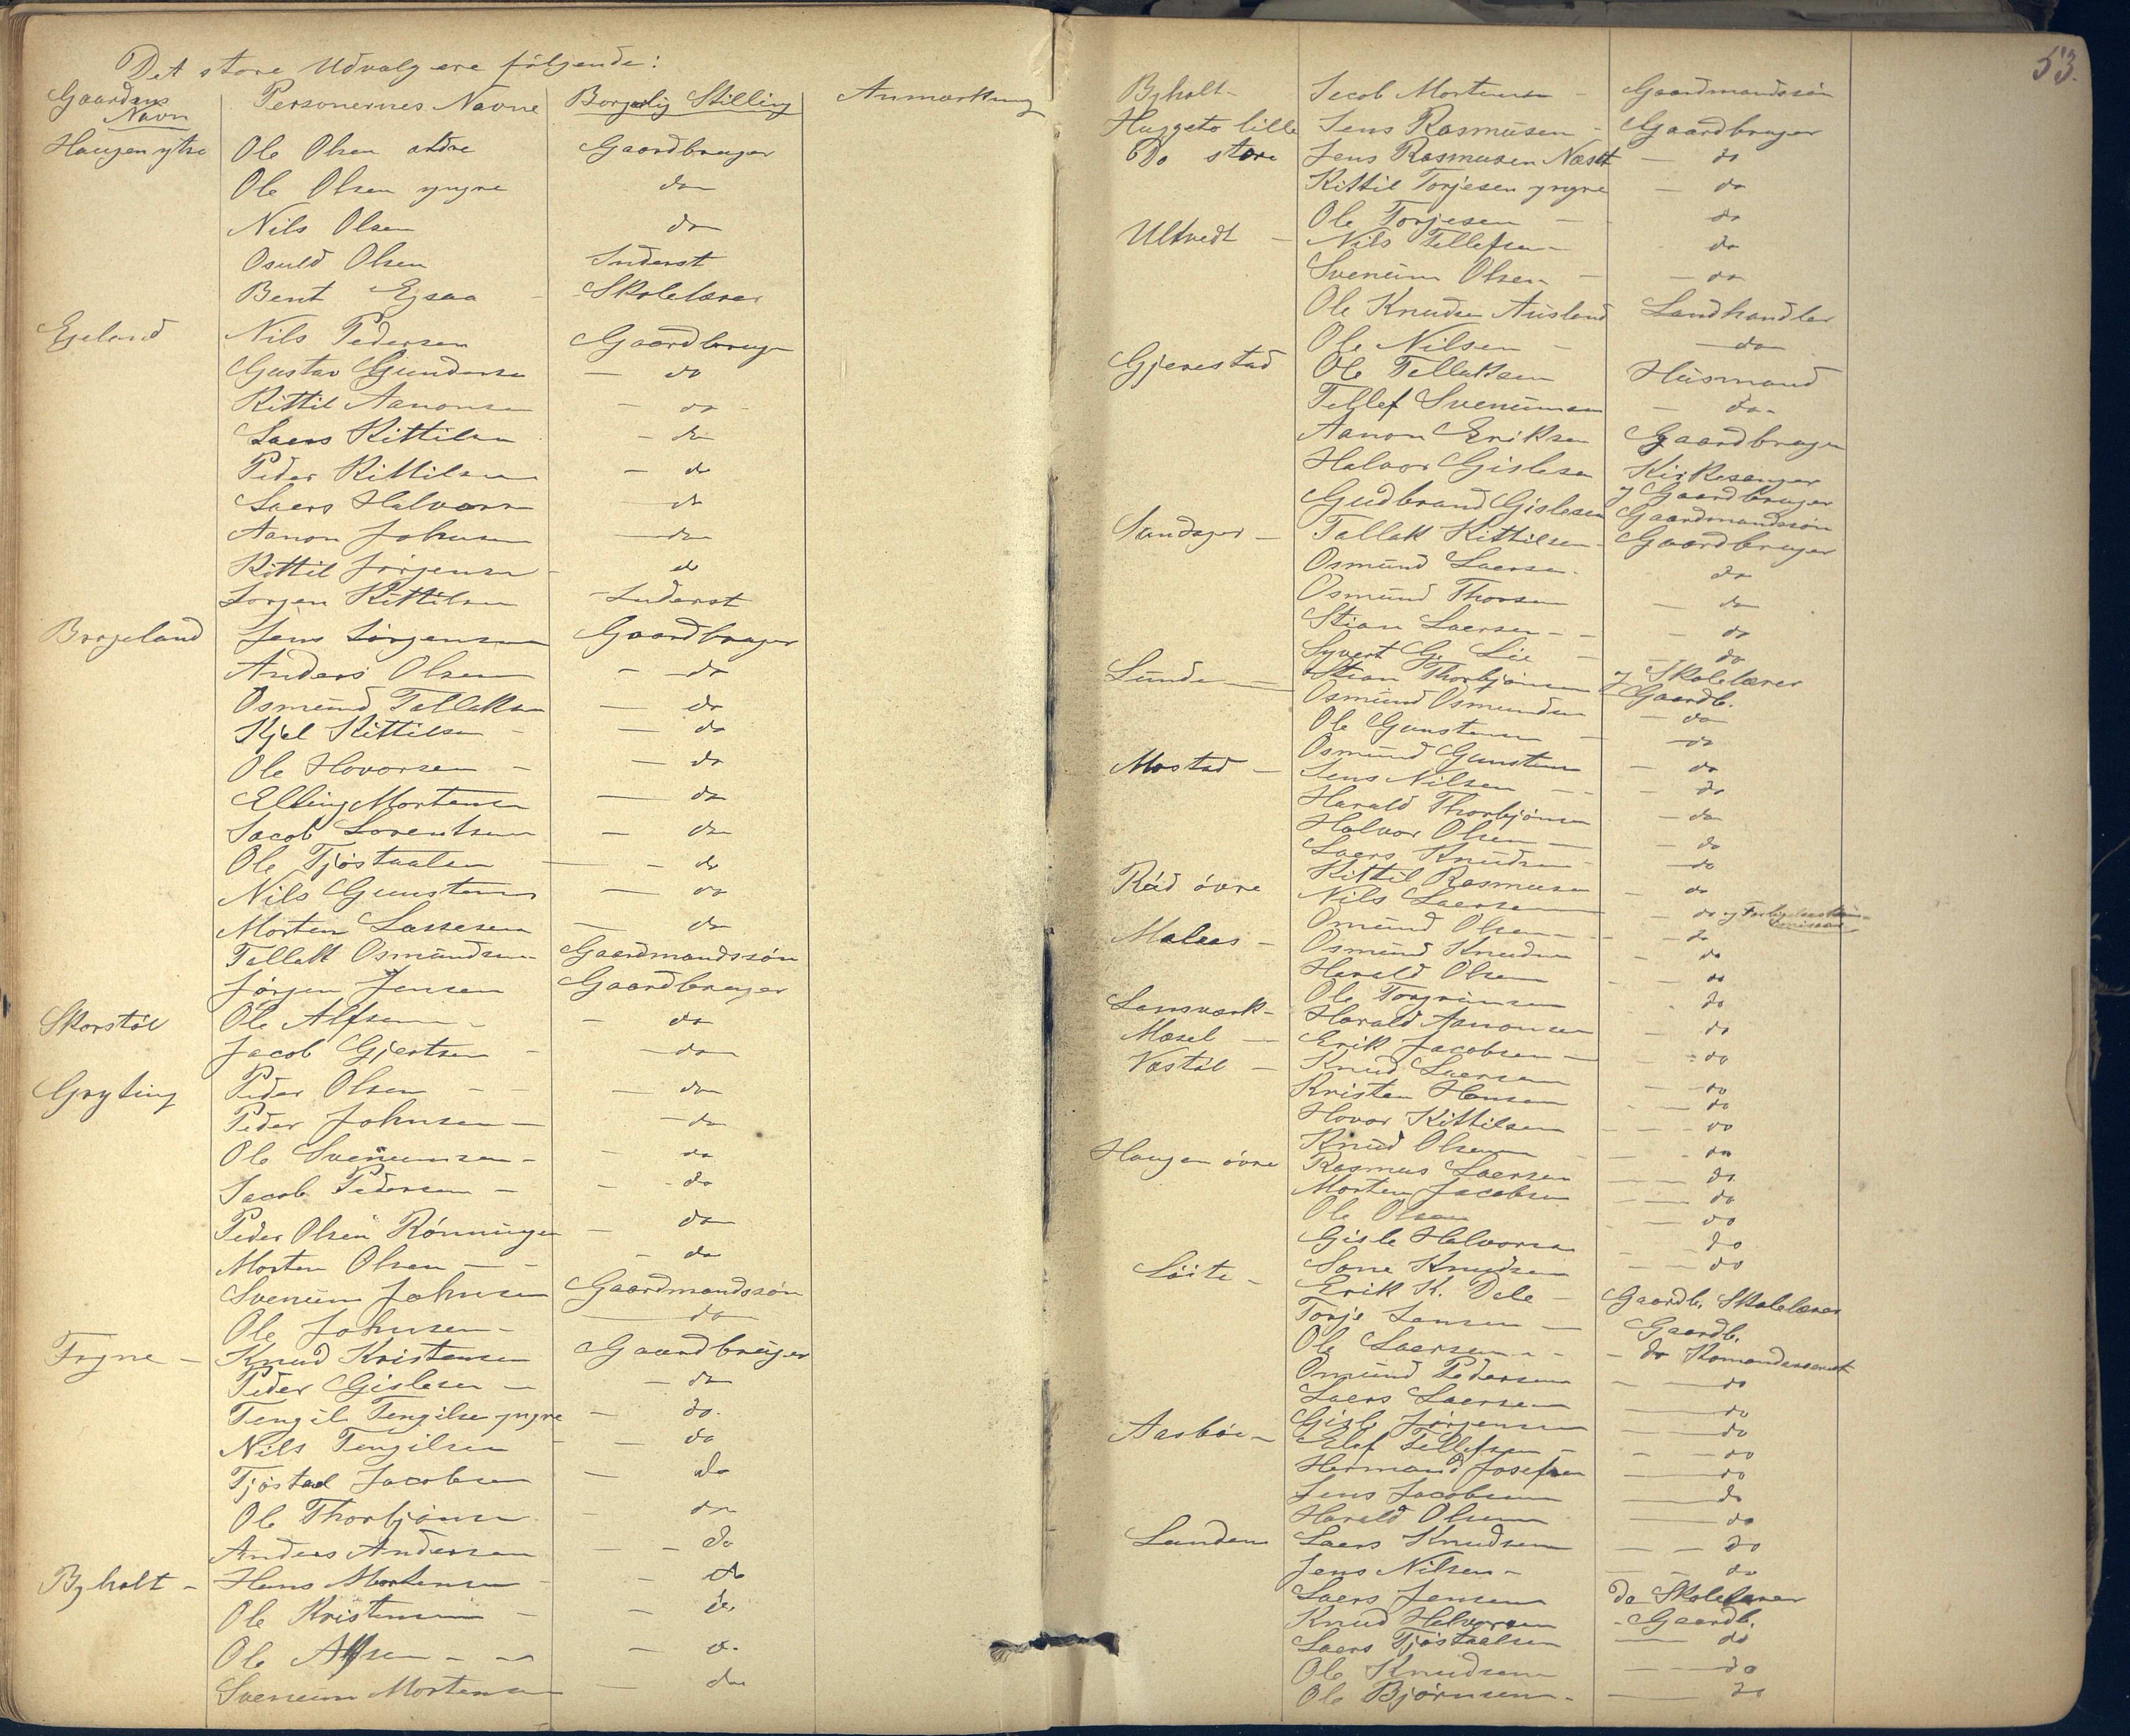 Det store Udvalg ere følgende:
Gaardens Navn Personernes Navne Borgerlig Stilling Anmærkning
Haugen ytre Ole Olsen ældre Gaardbruger
Ole Olsen yngre do
Nils Olsen do
Osuld Olsen Inderst
Bent Egsaa - Skolelærer
Egeland Nils Pedersen Gaardbruger
Gustav Gundersen — do
Kittil Aanonsen — do
Laers Kittilsen — do
Peder Kittilsen — do
Laers Halvorsen — do
Aanon Johnsen — do
Kittil Jørgensen — do
Jørgen Kittilsen Inderst
Brøgeland Jens Jørgensen Gaardbruger
Anders Olsen — do
Osmund Tallaksen — do
Kjel Kittilsen — do
Ole Hovorsen — do
Elling Mortensen — do
Jacob Lorentsen — do
Ole Tjøstaalsen — do
Nils Gunstensen — do
Morten Lassesen — do
Tallak Osmundsen Gaardmandssøn
Jørgen Jensen Gaardbruger
Skorstøl Ole Alfsen — do
Jacob Gjertsen — do
Gryting Peder Olsen — do
Peder Johnsen — do
Ole Sveinumsen — do
Jacob Pedersen — do
Peder Olsen Rønningen — do
Morten Olsen — do
Sveinum Johnsen Gaardmandssøn
Ole Johnsen — do
Trgne — Knud Kristensen Gaardbruger
Peder Gislesen — do
Tengil Tengilsen yngre — do
Nils Tengilsen — do
Tjøstad Jacobsen — do
Ole Thorbjønsen do
Anders Andersen — do
Byholt — Hans Mortensen — do
Ole Kristensen — do
Ole Alfsen — do
Sveinum Mortensen — do
53.
Byholt - Jacob Mortensen - Gaardmandssøn
Huggeto lille Jens Rasmusen - Gaardbruger
Do store Jens Rasmusen Næset — do
Kittil Torjesen yngre — do
Ole Torjesen — do
Ulltvedt — Nils Tellefsen do
Sveinum Olsen — do
Ole Knudsen Ausland Landhandler
Ole Nilsen — do
Gjerestad Ole Tallaksen Husmand
Tellef Sveinumsen — do
Aanon Eriksen Gaardbruger
Halvor Gislesen Kirkesanger og Gaardbruger
Gudbrand Gislesen Gaardmandssøn
Sandager — Tallak Kittilsen Gaardbruger
Osmund Laersen do
Osmund Thorsen — do
Stian Laersen — do
Syvert G. Lie — do og Skolelærer
Lunde — Stian Thorbjønsen Gaardb.
Osmund Osmundsen — do
Ole Gunstensen — do
Osmund Gunstensen — do
Mostad — Jens Nilsen — do
Harald Thorbjønsen — do
Halvor Olsen — do
Laers Knudsen — do
Kittil Rasmusen — do
Rød øvre Nils Laersen — do og
Omund Olsen — do
Malaas — Osmund Knudsen — do
Harald Olsen — do
Ole Torgrimsen do
Lønsværk — Harald Aanonsen — do
Mosel — Erik Jacobsen — do
Vastøl — Knud Laersen do
Kristen Hansen — do
Hovor Kittilsen — do
Knud Olsen — do
Haugen øvre Rasmus Laersen — do
Morten Jacobsen — do
Ole Olsen — do
Gisle Halvorsen do
Løite — Sone Knudsen — do
Erik K. Dale — Gaardb. Skolelærer
Torje Jensen — Gaardb.
Ole Laersen — do
Omund Pedersen — do
Laers Laersen — do
Gisle Jørgensen — do
Aasbøe — Elef Tellefsen — do
Hermand Josefsen — do
Jens Jacobsen — do
Harald Olsen — do
Lunden Laers Knudsen — do
Jens Nilsen — do
Laers Jensen do Skolelærer
Knud Halvorsen - Gaardb.
Laers Tjøstaalsen — do
Ole Knudsen — do
Ole Bjørnsen — do